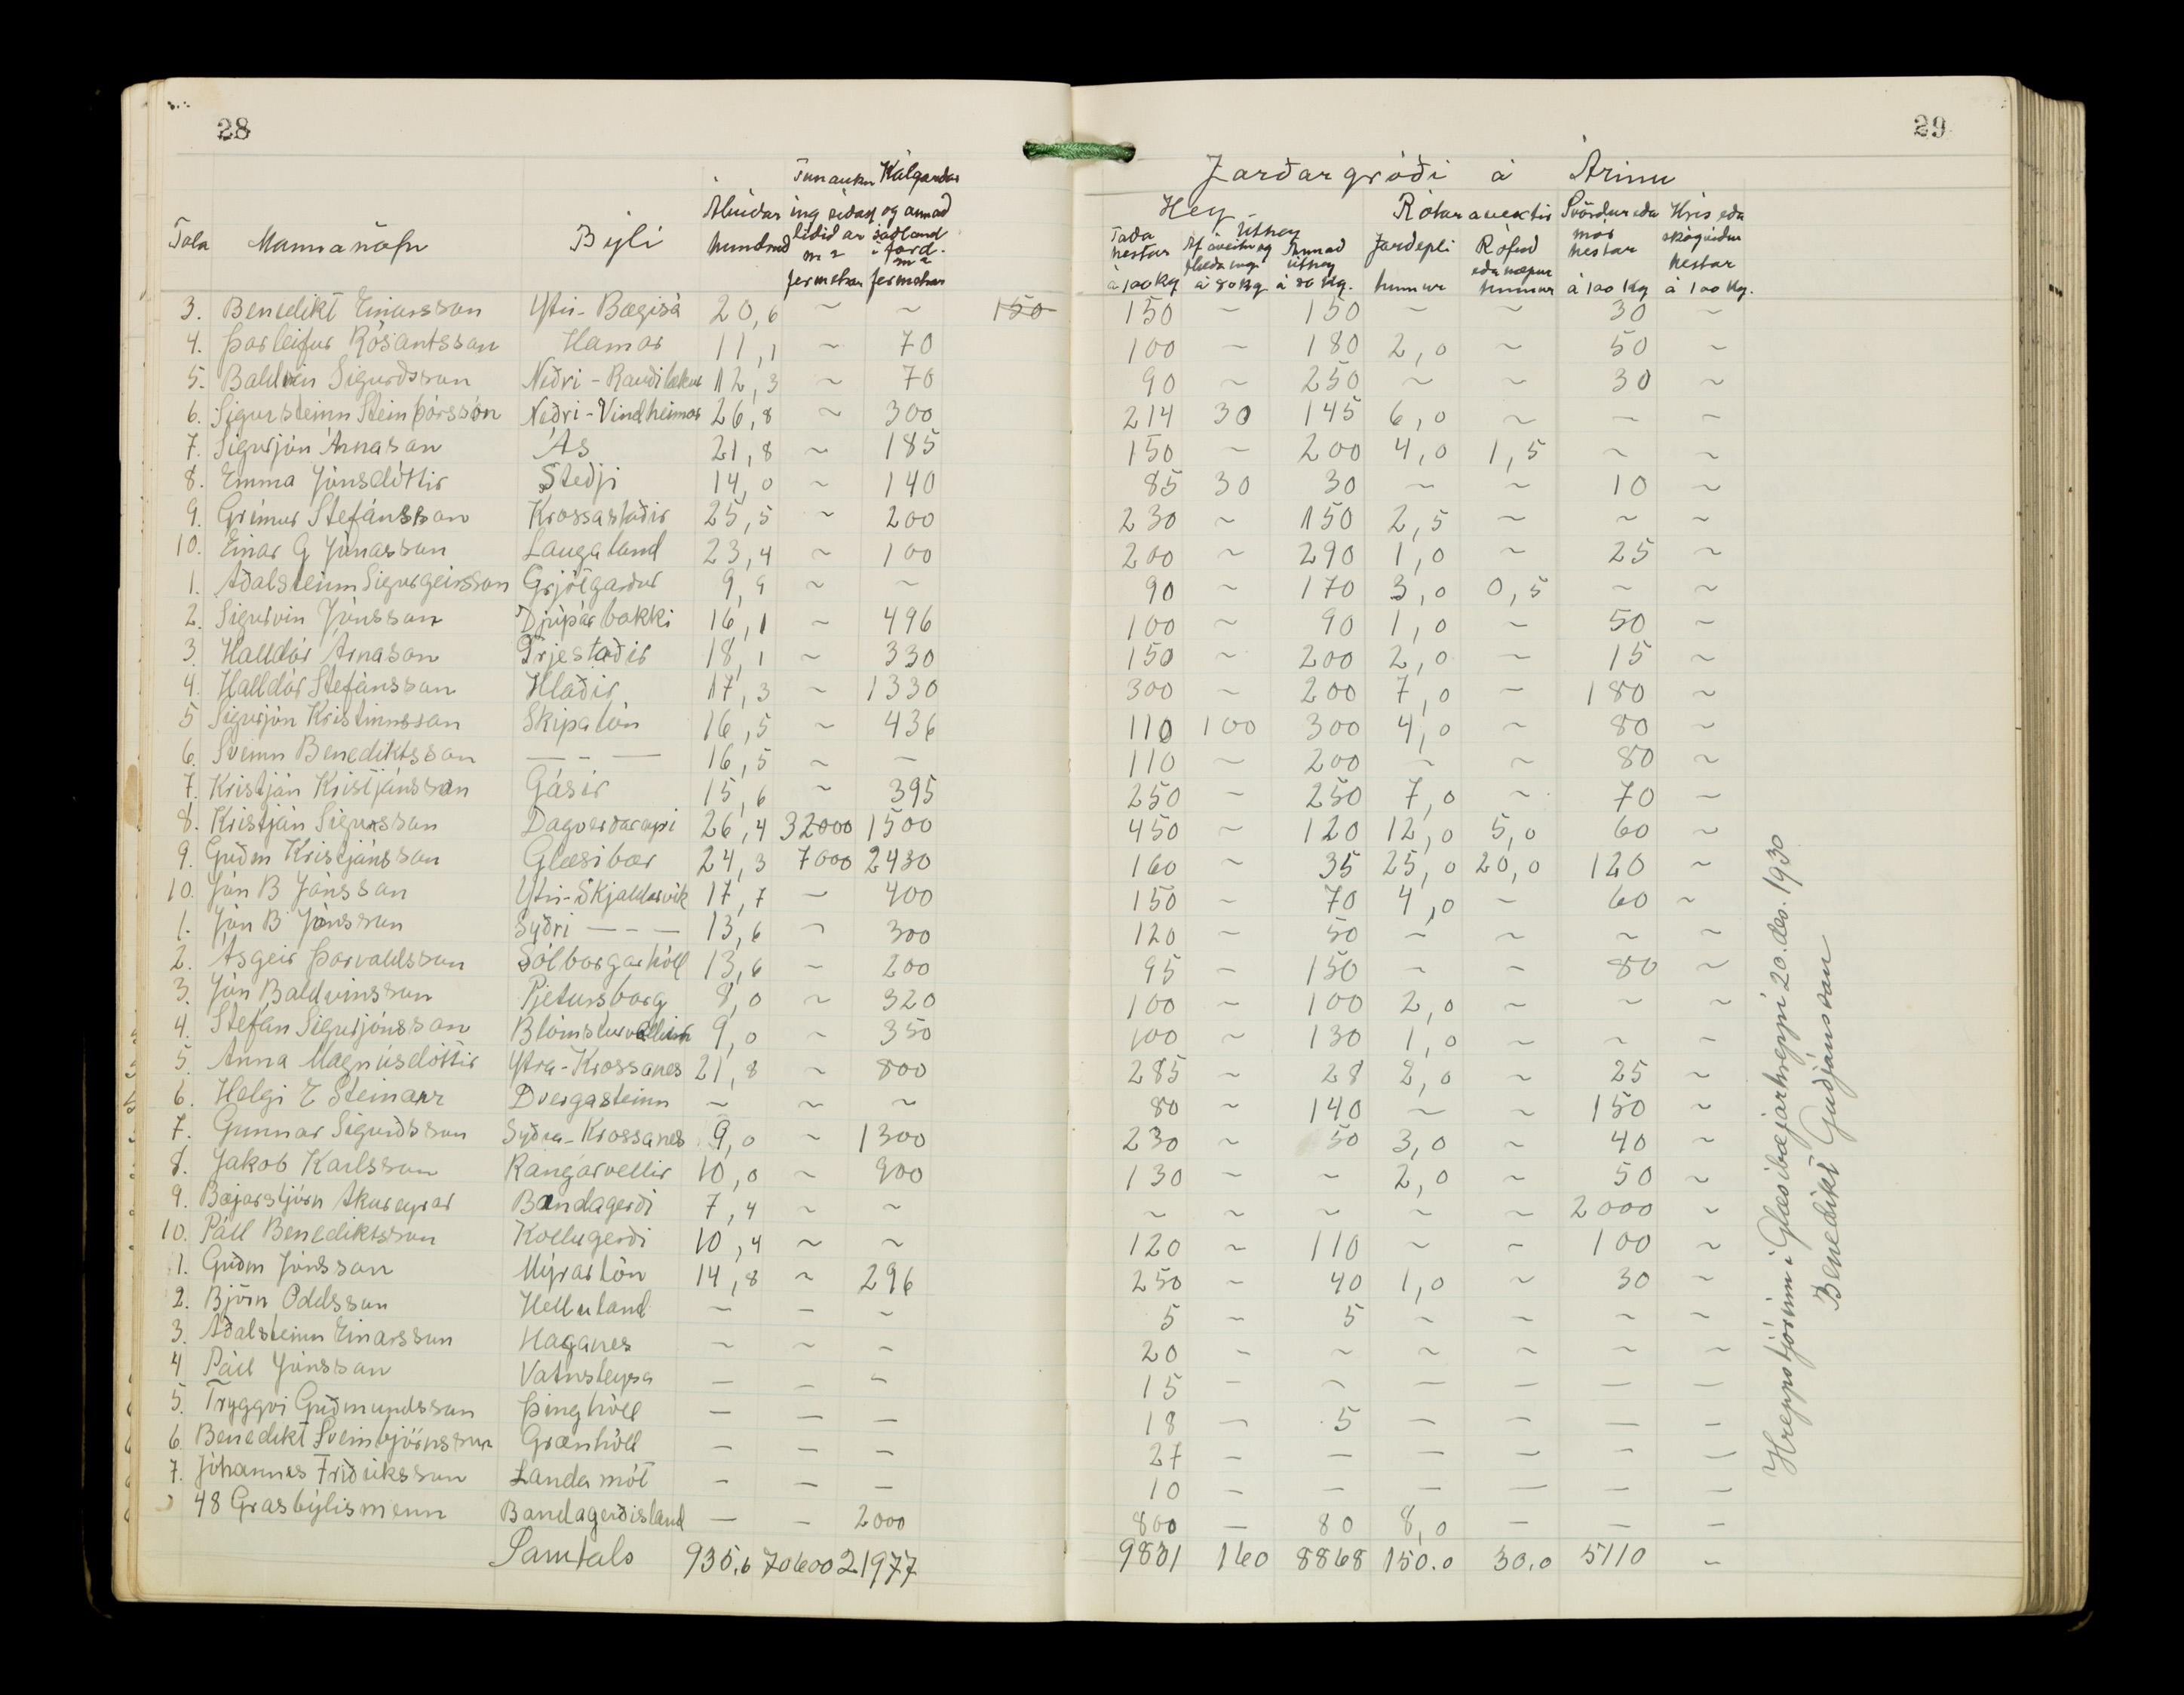 28
29
Jarðargróði á Árinu
Tala Mannanöfn Býli Ábúðar hundruð Túnaukn ing síðast liðið ár m2 fermetrar Kálgarðar og annað sáðland í fard. m2 fermetrar
Hey Úthey Rótar avextir Svörður eða mór hestar á 100 Kg Hrís eða skógviður hestar á 100 Kg.
Taða hestar á 100 Kg Af áveitu og flæðiengi á 80 Kg Annað úthey á 80 Kg. Jarðepli tunnur Rófur eða næpur tunnur
3. Benedikt Einarsson Ytri-Bægisá 20,6 ~ ~ 150 150 ~ 150 ~ ~ 30 ~
4. Þorleifur Rósantsson Hamar 11,1 ~ 70 100 ~ 180 2,0 ~ 50 ~
5. Baldvin Sigurðsson Neðri-Rauðilækur 12,3 ~ 70 90 ~ 250 ~ ~ 30 ~
6. Sigursteinn Steinþórsson Neðri-Vindheimar 26,8 ~ 300 214 30 145 6,0 ~ ~ ~
7. Sigurjón Árnason Ás 21,8 ~ 185 150 ~ 200 4,0 1,5 ~ ~
8. Emma Jónsdóttir Steðji 14,0 ~ 140 85 30 30 ~ ~ 10 ~
9. Grímur Stefánsson Krossastaðir 25,5 ~ 200 230 ~ 150 2,5 ~ ~ ~
10. Einar G Jónasson Laugaland 23,4 ~ 100 200 ~ 290 1,0 ~ 25 ~
1. Aðalsteinn Sigurgeirsson Grjótgarður 9,9 ~ ~ 90 ~ 170 3,0 0,5 ~ ~
2. Sigurvin Jónsson Djúpárbakki 16,1 ~ 496 100 ~ 90 1,0 ~ 50 ~
3. Halldór Árnason Tijestaðir 18,1 ~ 330 150 ~ 200 2,0 ~ 15 ~
4. Halldór Stefánsson Hlaðir 17,3 ~ 1330 300 ~ 200 7,0 ~ 180 ~
5 Sigurjón Kristinnsson Skipalón 16,5 ~ 436 110 100 300 4,0 ~ 80 ~
6. Sveinn Benediktsson — - — 16,5 ~ — 110 ~ 200 ~ ~ 80 ~
7. Kristján Kristjánsson Gásir 15,6 ~ 395 250 ~ 250 7,0 ~ 70 ~
8. Kristján Sigursson Dagverðareyri 26,4 32000 1500 450 ~ 120 12,0 5,0 60 ~
9. Guðm Kristjánsson Glæsibær 24,3 7000 2430 160 ~ 35 25,0 20,0 120 ~
10. Jón B Jónsson Ytri-Skjaldarvík 17,7 ~ 400 150 ~ 70 4,0 ~ 60 ~
1. Jón B Jónsson Syðri — - — 13,6 ~ 300 120 ~ 50 ~ ~ ~ ~
2. Ásgeir Þorvaldsson Sólborgarhóll 13,6 ~ 200 95 ~ 150 ~ ~ 80 ~
3. Jón Baldvinsson Pjetursborg 8,0 ~ 320 100 ~ 100 2,0 ~ ~ ~
4. Stefán Sigurjónsson Blómsturvellir 9,0 ~ 350 100 ~ 130 1,0 ~ ~ ~
5. Anna Magnúsdóttir Ytra-Krossanes 21,8 ~ 800 285 ~ 28 2,0 ~ 25 ~
6. Helgi E Steinarr Dvergasteinn ~ ~ ~ 80 ~ 140 ~ ~ 150 ~
7. Gunnar Sigurðsson Syðra-Krossanes 9,0 ~ 1300 230 ~ 50 3,0 ~ 40 ~
8. Jakob Karlsson Rangárvellir 10,0 ~ 900 130 ~ ~ 2,0 ~ 50 ~
9. Bæjarstjórn Akureyrar Bandagerði 7,4 ~ ~ ~ ~ ~ ~ ~ 2000 ~
10. Páll Benediktsson Kollugerði 10,4 ~ ~ 120 ~ 110 ~ ~ 100 ~
1. Guðm Jónsson Mýrarlón 14,8 ~ 296 250 ~ 40 1,0 ~ 30 ~
2. Björn Oddsson Helluland ~ ~ ~ 5 ~ 5 ~ ~ ~ ~
3. Aðalsteinn Einarsson Haganes ~ ~ ~ 20 ~ ~ ~ ~ ~ ~
4 Páll Jónsson Vatnsleysa — — — 15 — ~ — — — —
5. Tryggvi Guðmundsson Þinghóll — — — 18 — 5 — — — —
6. Benedikt Sveinbjörnsson Grænhóll — — — 27 — — — — — —
7. Jóhannes Friðriksson Landamót — — — 10 — — — — — —
48 Grasbýlismenn Bandagerðisland — — 2000 800 — 80 8,0 — — —
Samtals 935.6 70600 21977 9831 160 8868 150.0 30.0 5110 ~
Hreppstjórinn í Glæsibæjarhreppi 20. des. 1930
Benedikt Guðjónsson